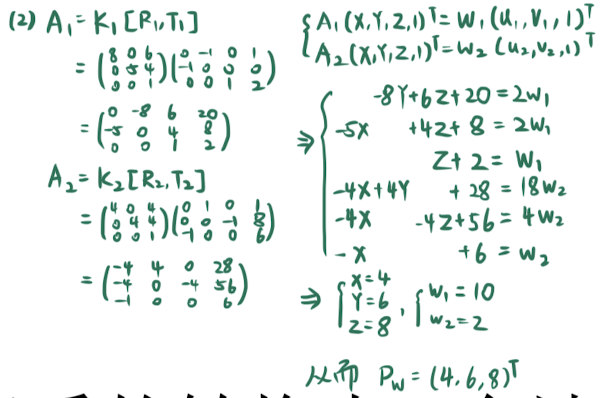 (2) A₁ = K₁ [R₁, T₁]
= (8 0 6; 0 5 4; 0 0 1) (0 -1 0 1; -1 0 0 0; 0 0 1 2)
= (0 -8 6 20; -5 0 4 8; 0 0 1 2)
A₂ = K₂ [R₂, T₂]
= (4 0 4; 0 4 4; 0 0 1) (0 1 0 1; 0 0 -1 8; -1 0 0 6)
= (-4 4 0 28; -4 0 -4 56; -1 0 0 6)
{ A₁ (X, Y, Z, 1)ᵀ = W₁ (u₁, v₁, 1)ᵀ
A₂ (X, Y, Z, 1)ᵀ = W₂ (u₂, v₂, 1)ᵀ
⇒ { -8Y + 6Z + 20 = 2W₁
-5X + 4Z + 8 = 2W₁
Z + 2 = W₁
-4X + 4Y + 28 = 18W₂
-4X - 4Z + 56 = 4W₂
-X + 6 = W₂
⇒ { X = 4
Y = 6
Z = 8 , { W₁ = 10
W₂ = 2
从而 P_W = (4, 6, 8)ᵀ